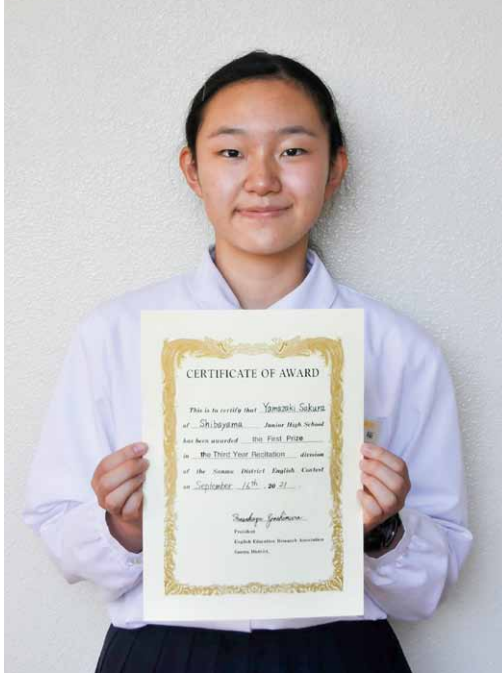 CERTIFICATE OF AWARD
This is to certify that Yamazaki Sakura
of Shibayama Junior High School
has been awarded the First Prize
in the Third Year Recitation division
of the Sanmu District English Contest
on September 16th . 20 21 .
President
English Education Research Association
Sanmu District